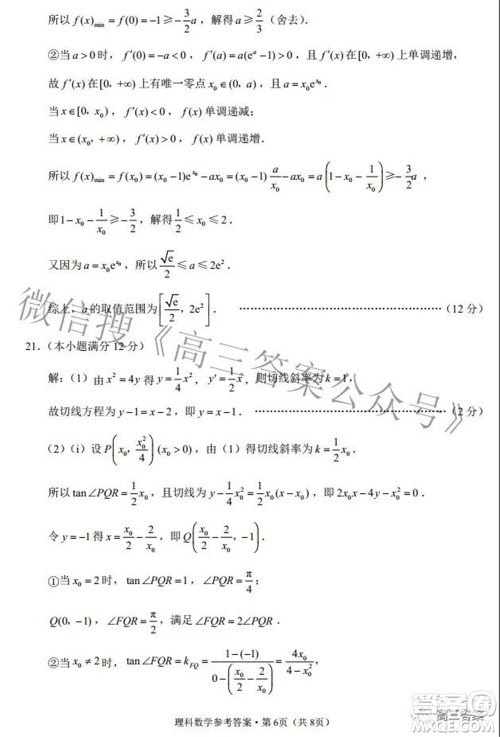 所以 f(x)min = f(0) = −1 ≥ −3/2 a，解得 a ≥ 2/3（舍去）．
②当 a > 0 时，f′(0) = −a < 0，f′(a) = a(eᵃ − 1) > 0，且 f′(x) 在 [0，+∞) 上单调递增，
故 f′(x) 在 [0，+∞) 上有唯一零点 x₀ ∈ (0，a)，且 a = x₀e^x₀．
当 x ∈ [0，x₀)，f′(x) < 0，f(x) 单调递减；
当 x ∈ (x₀，+∞)，f′(x) > 0，f(x) 单调递增．
所以 f(x)min = f(x₀) = (x₀ − 1)e^x₀ − ax₀ = (x₀ − 1) a/x₀ − ax₀ = a(1 − x₀ − 1/x₀) ≥ −3/2 a，
即 1 − x₀ − 1/x₀ ≥ −3/2，解得 1/2 ≤ x₀ ≤ 2．
又因为 a = x₀e^x₀，所以 √e/2 ≤ a ≤ 2e²．
综上，a 的取值范围为 [√e/2，2e²]．…………（12 分）
21．（本小题满分 12 分）
解：（1）由 x² = 4y 得 y = 1/4 x²，y′ = 1/2 x，则切线斜率为 k = 1．
故切线方程为 y − 1 = x − 2，即 y = x − 1．…………（2 分）
（2）（i）设 P(x₀，x₀²/4)(x₀ > 0)，由（1）得切线斜率为 k = 1/2 x₀，
所以 tan∠PQR = 1/2 x₀，且切线为 y − 1/4 x₀² = 1/2 x₀(x − x₀)，即 2x₀x − 4y − x₀² = 0．
令 y = −1 得 x = x₀/2 − 2/x₀，即 Q(x₀/2 − 2/x₀，−1)．
①当 x₀ = 2 时，tan∠PQR = 1，∠PQR = π/4；
Q(0，−1)，∠FQR = π/2，满足 ∠FQR = 2∠PQR．
②当 x₀ ≠ 2 时，tan∠FQR = k_FQ = (1 − (−1))/(0 − (x₀/2 − 2/x₀)) = 4x₀/(4 − x₀²)，
理科数学参考答案・第 6页（共 8页）
微信搜《高三答案公众号》
高三答案